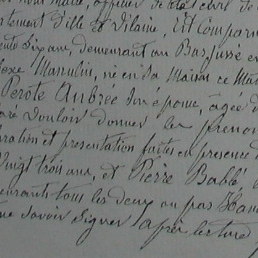 officier de l'état civil de
tement d'Ille et Vilaine, Est Comparu
six ans, demeurant au Bas Jussé en
sexe Masculin, né en Sa Maison ce Ma
Perote Aubrée Son épouse, agée d
aré Vouloir donner les prenom
aration et presentation faites en presence d
Vingt trois ans, et Pierre Bablé
eurants tous les deux au pas
ne savoir signer après lecture